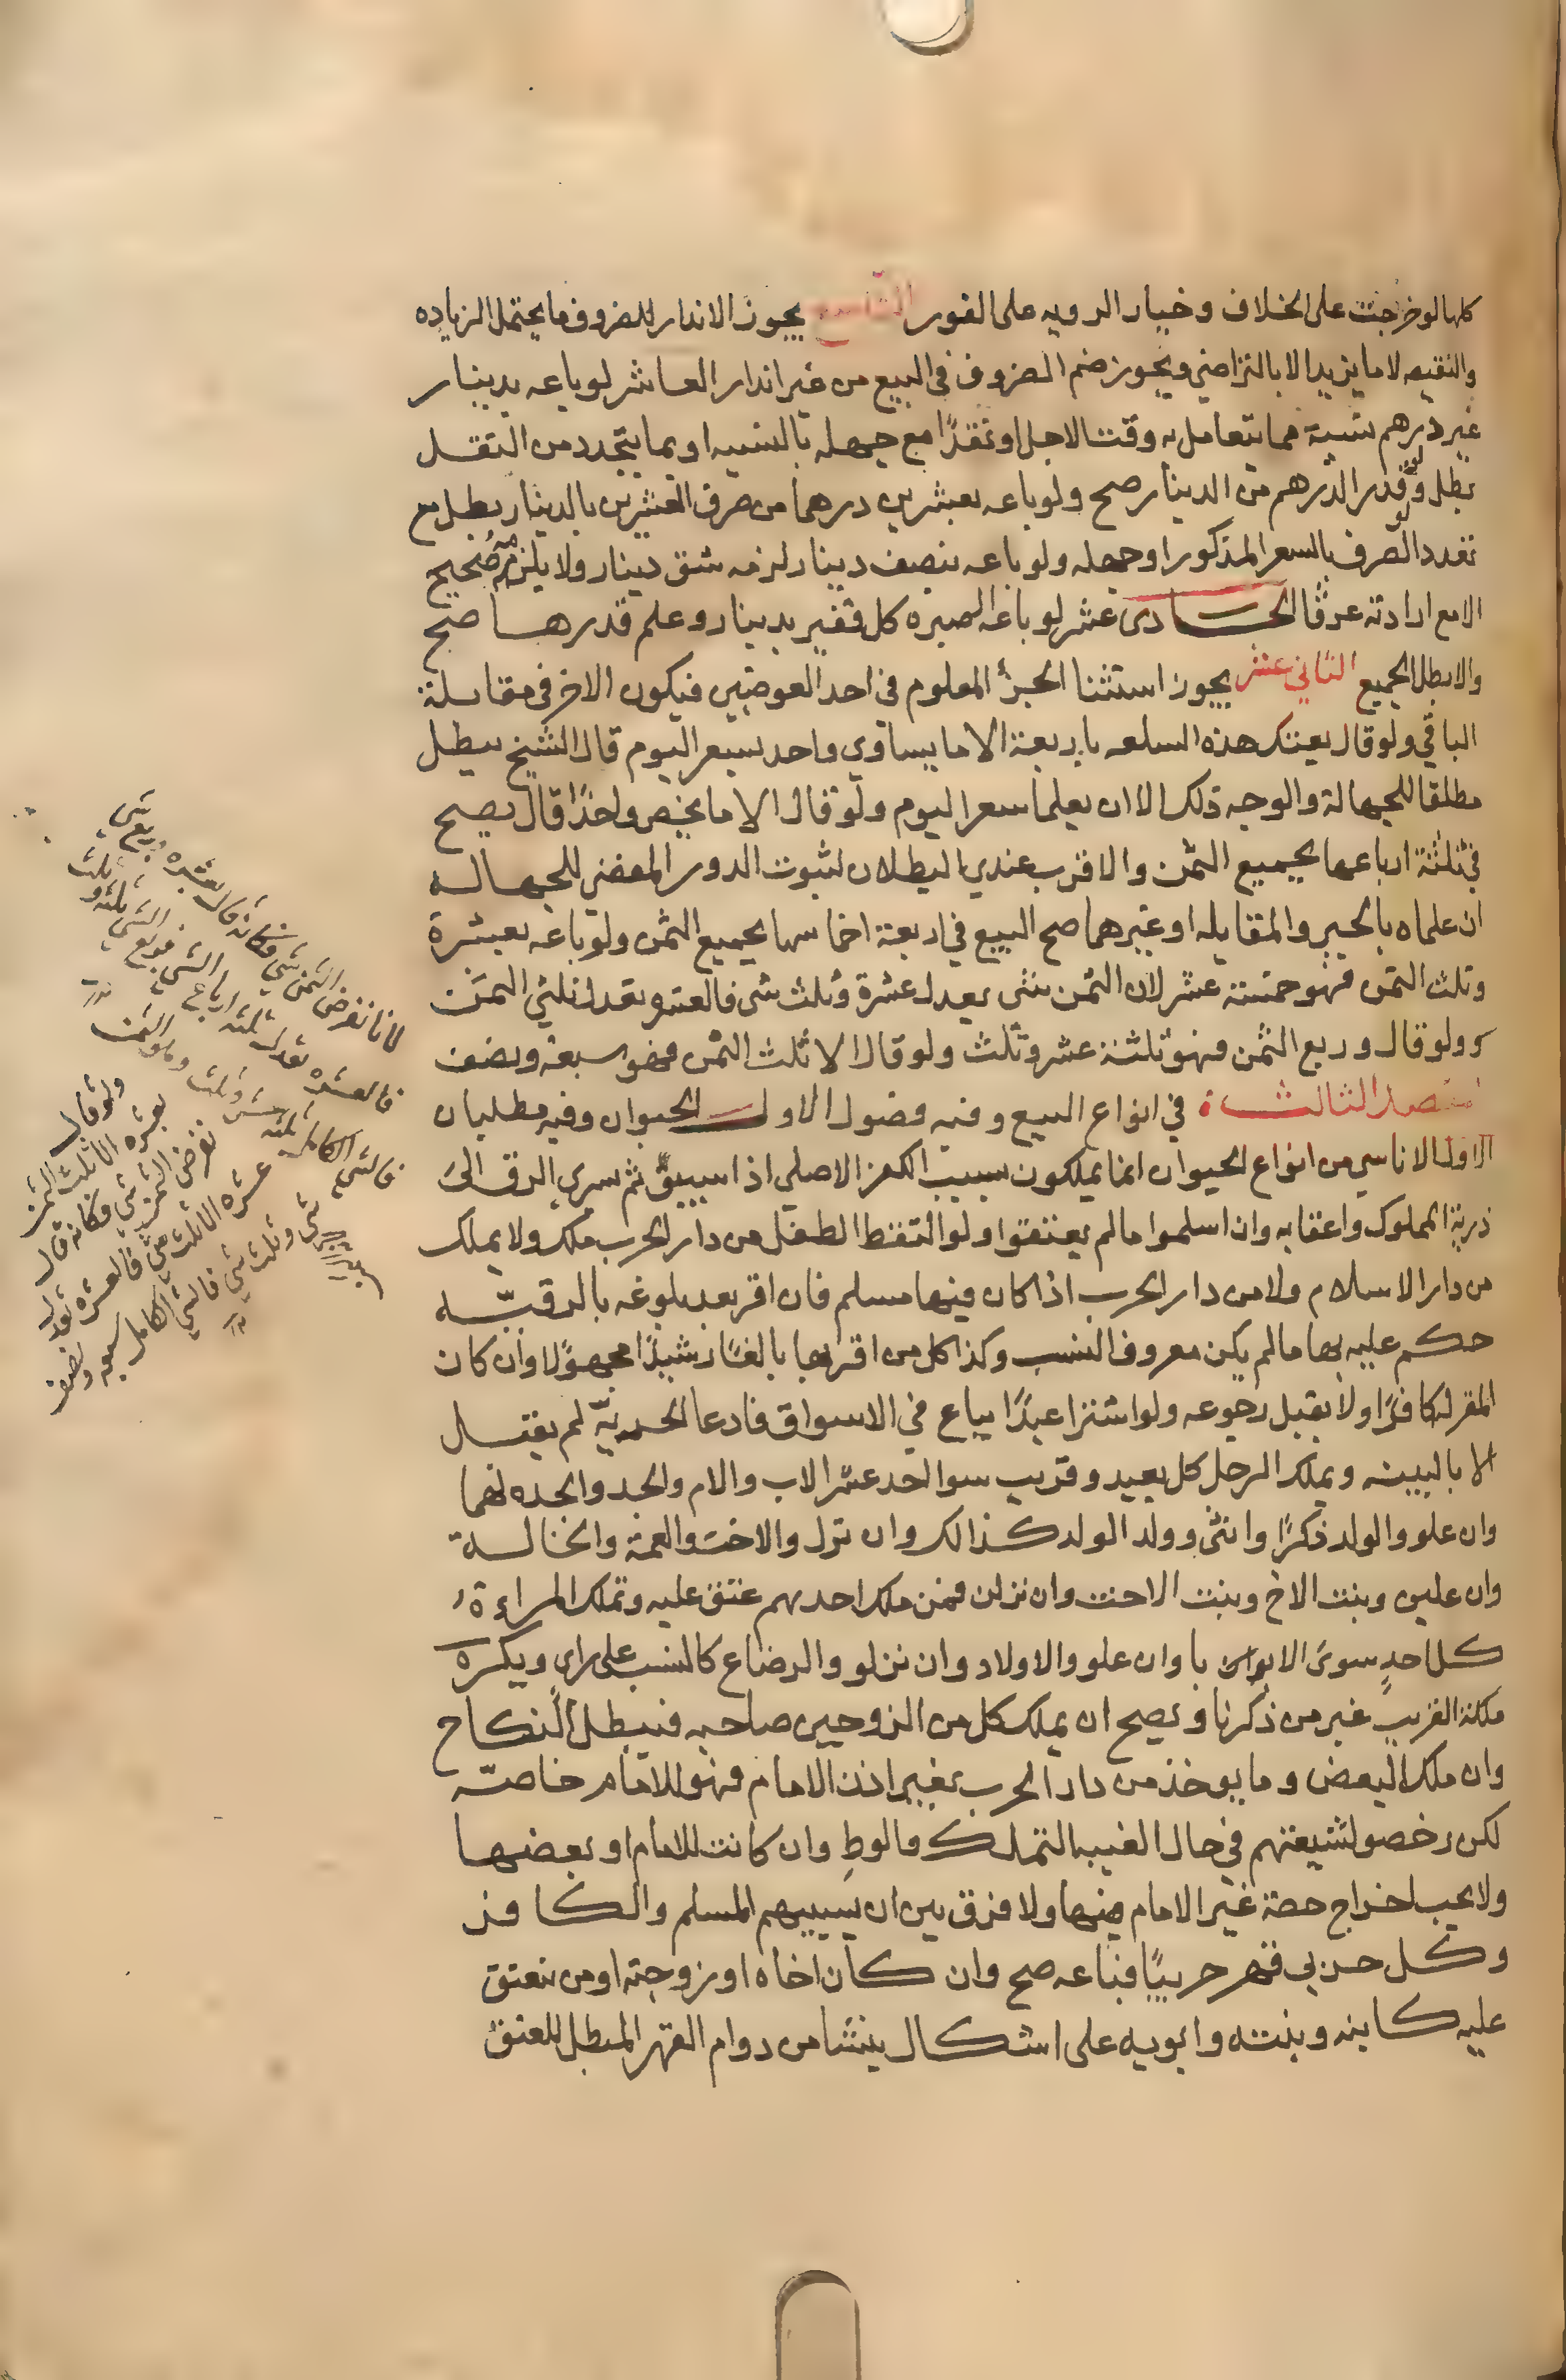 كلها لو خرجت على الخلاف وخيار الرويه على الفور التاسع يجوز الاندار للظروف ما يحتمل الزياده
والنقيصه لا ما يزيد الا بالتراضي ويجوز ضم الظروف في البيع من غير اندار العاشر لو باعه بدينار
غير درهم نسية مما يتعامل به وقت الاجل او نقدًا مع جهله بالنسبه او بما يتجدد من النقل
بطل ولو قدر الدرهم من الدينار صح ولو باعه بعشرين درهما من صرف العشرين بالدينار بطل مع
تعدد الصرف بالسعر المذكور او جهله ولو باعه بنصف دينار لزمه شق دينار ولا يلزمه صحيح
الا مع ارادته عرفًا الحادى عشر لو باعه الصبره كل قفيز بدينار وعلم قدرها صح
والا بطل الجميع الثاني عشر يجوز استثنا الجزء المعلوم في احد العوضين فيكون الاخر في مقابلة
الباقي ولو قال بعتك هذه السلعه باربعة الا ما يساوي واحد بسعر اليوم قال الشيخ يبطل
مطلقا للجهالة والوجه ذلك الا ان يعلما سعر اليوم ولو قال الا ما يخص واحدًا قال يصح
في ثلثة ارباعها بجميع الثمن والاقرب عندي البطلان لثبوت الدور المفضي للجهاله
ان علماه بالجبر والمقابله او غيرهما صح البيع في اربعة اخماسها بجميع الثمن ولو باعه بعشرة
وثلث الثمن فهو خمسة عشر لان الثمن شى يعدل عشرة وثلث شى فالعشره تعدل ثلثي الثمن
و ولو قال وربع الثمن فهو ثلثة عشر وثلث ولو قال الا ثلث الثمن فهو سبعة ونصف
المقصد الثالث في انواع المبيع وفيه فصول الاول الحيوان وفيه مطلبان
الاول الاناسي من انواع الحيوان انما يملكون بسبب الكفر الاصلي اذا سبيوّ ثم سري الرق الى
ذرية المملوك واعقابه وان اسلموا ما لم يعتقوا ولو التقط الطفل من دار الحرب ملك ولا يملك
من دار الاسلام ولا من دار الحرب اذا كان فيها مسلم فان اقر بعد بلوغه بالرقيّه
حكم عليه بها ما لم يكن معروف النسب وكذا كل من اقر بها بالغًا رشيدًا مجهولا وان كان
المقر له كافرًا ولا يقبل رجوعه ولو اشترا عبدًا يباع في الاسواق فادعا الحريّه لم يقبل
الا بالبينه ويملك الرجل كل بعيد وقريب سوا احد عشر الاب والام والجد والجده لهما
وان علو والولد ذكرًا وانثى وولد الولد كذالك وان نزل والاخت والعمة والخالة
وان علين وبنت الاخ وبنت الاخت وان نزلن فمن ملك احدهم عتق عليه وتملك المراءة
كل احدٍ سوى الابوان با وان علو والاولاد وان نزلو والرضاع كالنسب على راى ويكره
ملكة القريب غير من ذكرنا ويصح ان يملك كل من الزوجين صاحبه فيبطل النكاح
وان ملك البعض وما يوخذ من دار الحرب بغير اذن الامام فهو للامام خاصّه
لكن رخصو لشيعتهم في حال الغيبه التملك والوطِ وان كانت للامام او بعضها
ولا يجب اخراج حصة غير الامام منها ولا فرق بين ان يسبيهم المسلم والكافر
وكل حربي قهر حربيًا فباعه صح وان كان اخاه او زوجته او من ينعتق
عليه كابنه وبنته وابويه على اشكال ينشا من دوام القهر المبطل للعتق
لانا نفرض الثمن شي فكانه قال بعشره وربع شي
فالعشره تعدل ثلثه ارباع الشي فربع الشي ثلثه وثلث
فالشي الكامل ثلثه عشر وثلث وهو الثمن
ولو قال
بعشره الا ثلث الثمن
نفرض الثمن شي فكانه قال
عشره الا ثلث شي فالعشره تعدل
شي وثلث شي فالشي الكامل سبعه ونصف